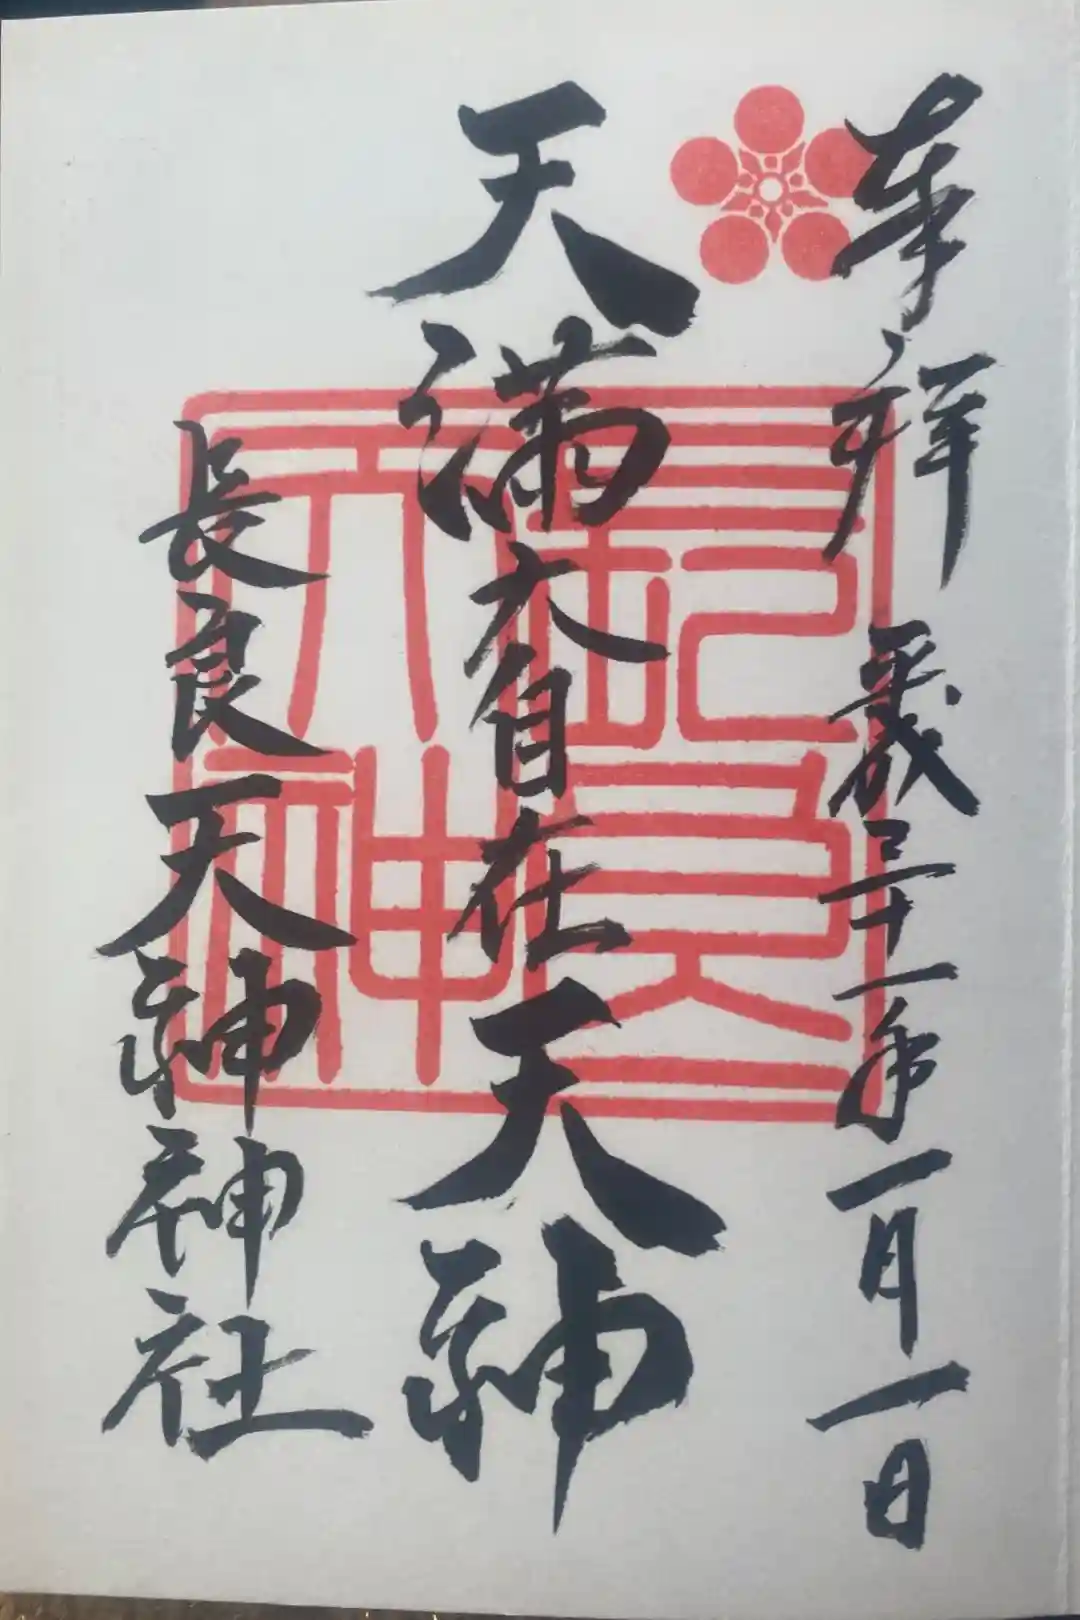 奉拝 平成三十一年一月一日
天満大自在天神
長良天神神社
長良天神